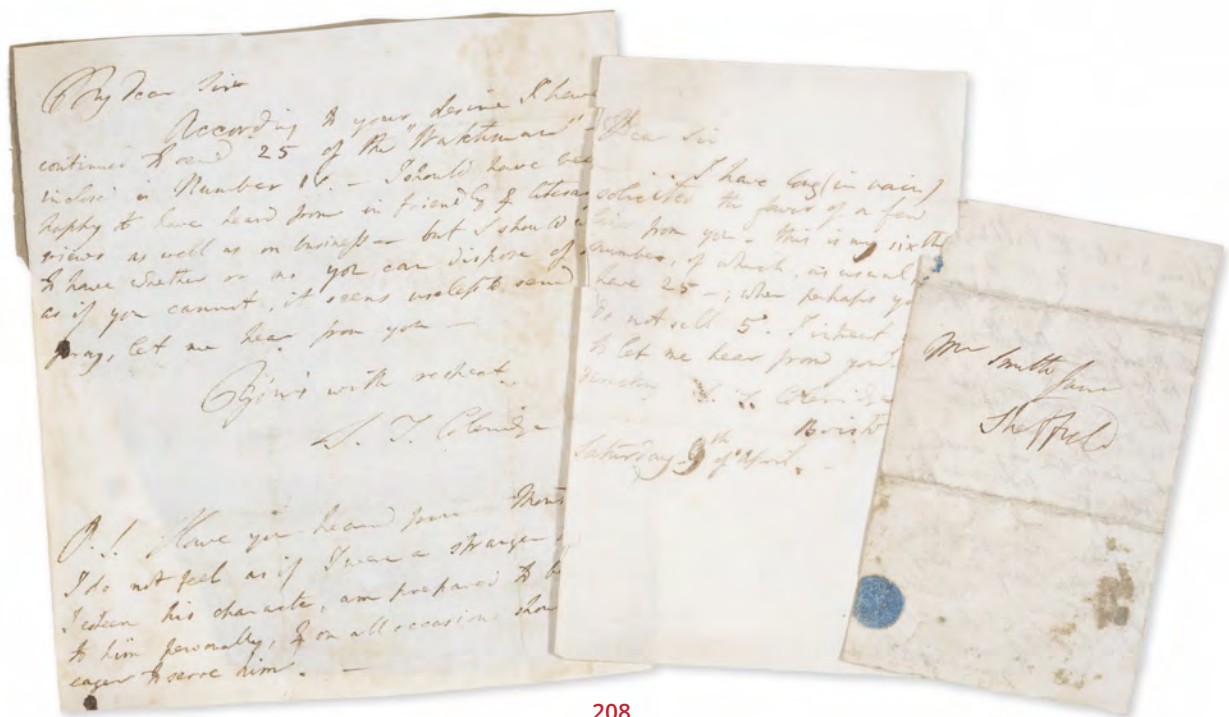 My dear Sir
According to your desire I have
continued to send 25 of the "Watchman" –
inclose is Number IV. – I should have bee
happy to have heard from in friendly & litera
views as well as on business – but I should
to have whether or no you can dispose of
as if you cannot, it seems useless to send
pray, let me hear from you –
Yours with respect
S. T. Coleridge
P.S. Have you heard from Mont
I do not feel as if I was a stranger
I esteem his character, am prepared to be
to him personally, & on all occasions shou
eager to serve him. –
Dear Sir
I have long (in vain)
solicited the favor of a few
lines from you – this is my sixth
number, of which, as usual
have 25 –; when perhaps yo
do not sell 5. I intreat
to let me hear from you
S. T. Coleridge
Bristo
Saturday 9th of April. –
Mr Smith Junr
Sheffield
208